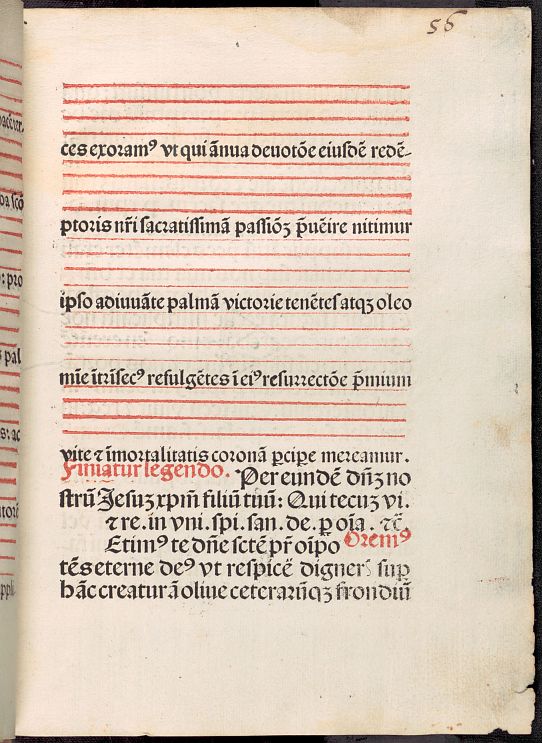 56
ces exoramꝰ vt qui ānua deuotōe eiusdē redē-
ptoris nr̄i sacratissimā passiōꝫ p̄uēire nitimur
ipso adiuuāte palmā victorie tenētes atqꝫ oleo
mīe ītrīsecꝰ refulgētes ī eiꝰ resurrectōe p̄mium
vite ⁊ īmortalitatis coronā ꝑcipe mereamur.
Finiatur legendo. Per eundē dn̄ꝫ no
strū Jesuꝫ xpm̄ filiū tuū: Qui tecuꝫ vi.
⁊ re. in vni. spi. san. de. ꝑ oīa. ⁊c̄.
Etimꝰ te dn̄e sctē pr̄ oīpo Oremꝰ
tēs eterne deꝰ vt respicē digneris suꝑ
hāc creaturā oliue ceterarūqꝫ frondiū